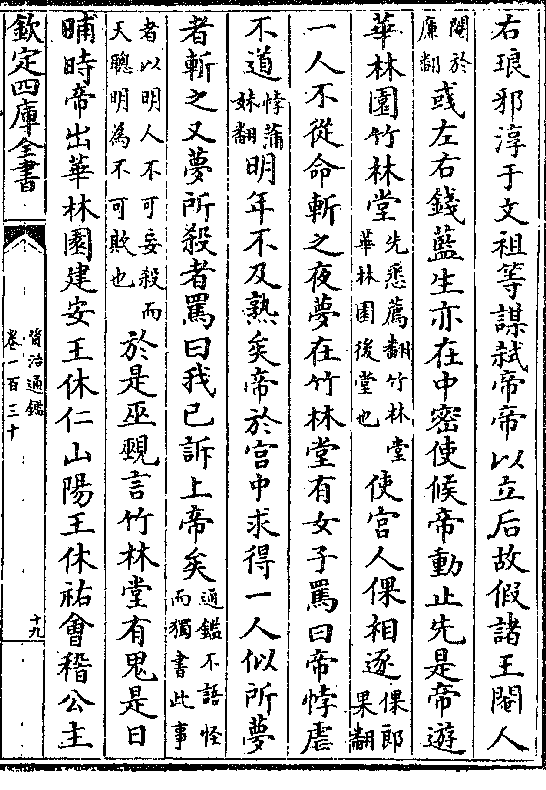 右琅邪淳于文祖等謀弑帝帝以立后故假諸王閹人
閹於廉翻彧左右錢藍生亦在中密使候帝動止先是帝遊
華林園竹林堂先悉薦翻竹林堂華林園後堂也使宮人倮相逐倮郎果翻
一人不從命斬之夜夢在竹林堂有女子罵曰帝悖虐
不道悖蒲妹翻明年不及熟矣帝於宮中求得一人似所夢
者斬之又夢所殺者罵曰我已訴上帝矣通鑑不語怪而獨書此事
者以明人不可妄殺而天聰明為不可欺也於是巫覡言竹林堂有鬼是日
晡時帝出華林園建安王休仁山陽王休祐會稽公主
欽定四庫全書
資治通鑑
卷一百三十
十九